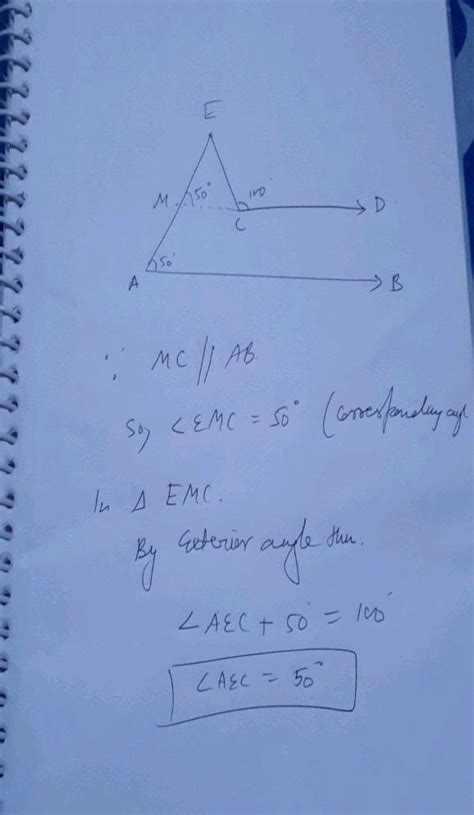 E
M 50° 100° D
C
50°
A B
∵ MC // AB
So, ∠EMC = 50° (corresponding
In Δ EMC.
By Exterior angle thm.
∠AEC + 50° = 100°
∠AEC = 50°